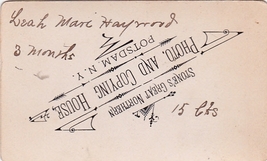 Leah Marie Haywood
3 months
STONE'S GREAT NORTHERN
PHOTO. AND COPYING HOUSE,
POTSDAM, N.Y.
15 Cts